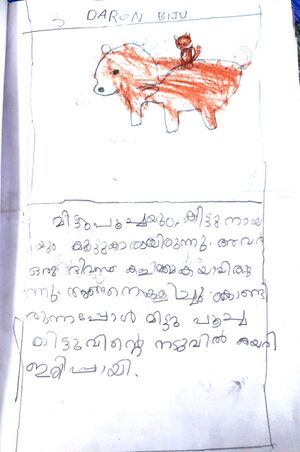 DARON BIJU
മിട്ടുപൂച്ചയും, കിട്ടു നായ
യും കൂട്ടുകാരായിരുന്നു. അവർ
ഒരു ദിവസം കളിക്കുകയായിരു
ന്നു. അങ്ങനെകളിച്ചു കൊണ്ടി
രുന്നപ്പോൾ മിട്ടു പൂച്ച
കിട്ടുവിന്റെ നടുവിൽ കയറി
ഇരിപ്പായി.